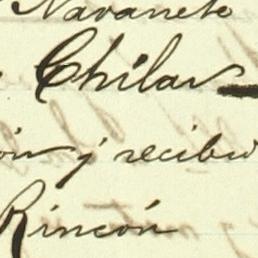 Navarrete
Chilar
ón y recibió
Rincón